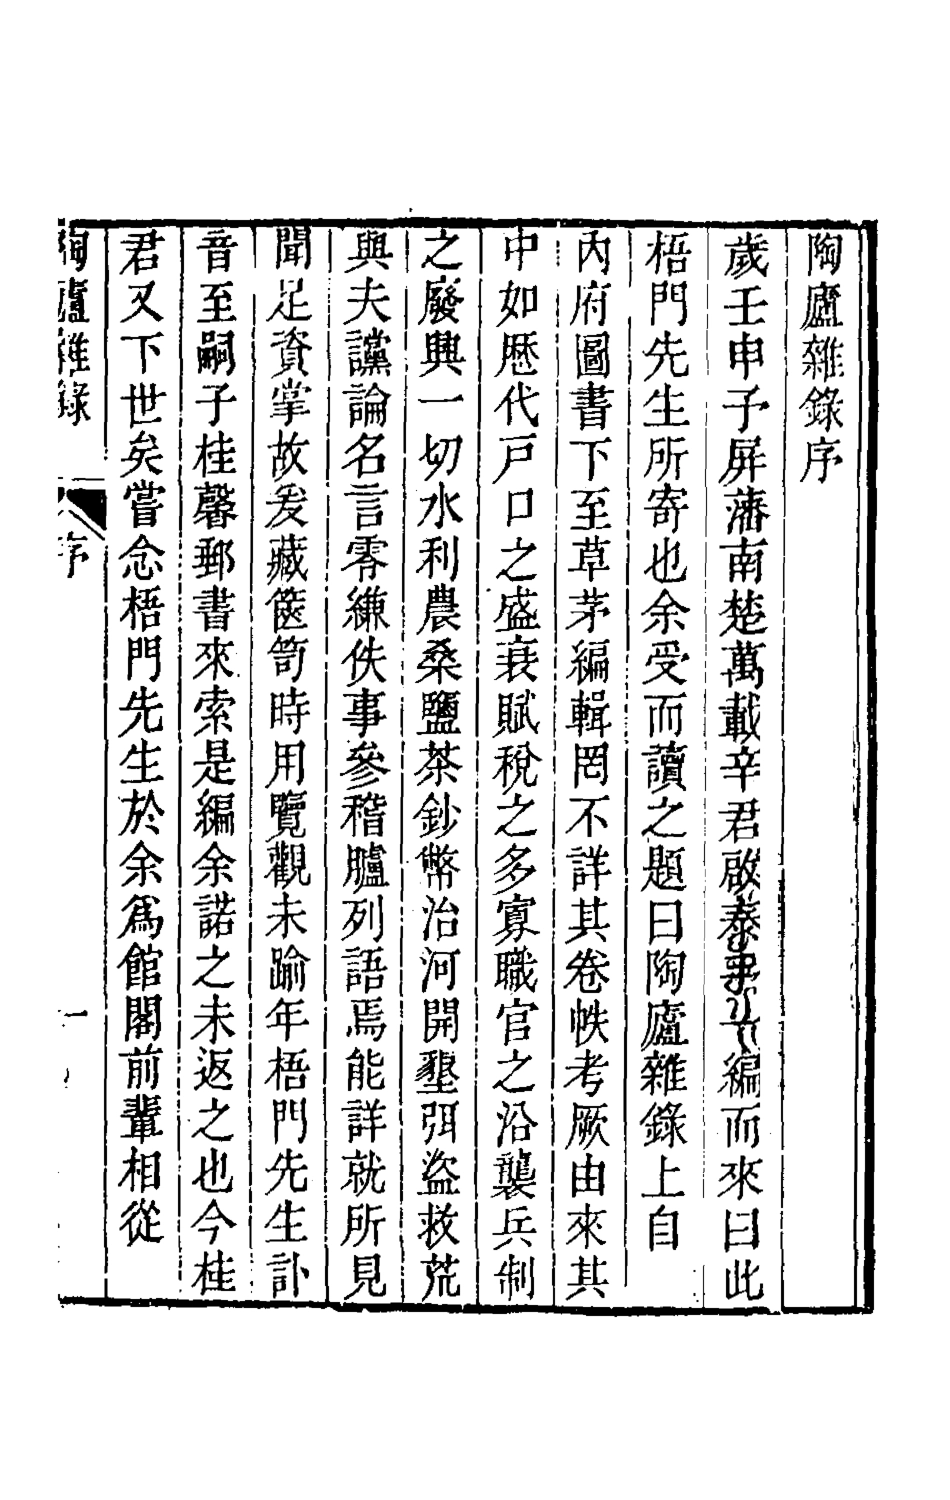 陶廬雜錄序
歲壬申子屏藩南楚萬載辛君啟泰一編而來曰此
梧門先生所寄也余受而讀之題曰陶廬雜錄上自
內府圖書下至草茅編輯罔不詳其卷帙考厥由來其
中如歷代戸口之盛衰賦稅之多寡職官之沿襲兵制
之廢興一切水利農桑鹽茶鈔幣治河開墾弭盜救荒
與夫讜論名言零縑佚事參稽臚列語焉能詳就所見
聞足資掌故爰藏篋笥時用覽觀未踰年梧門先生訃
音至嗣子桂馨郵書來索是編余諾之未返之也今桂
君又下世矣嘗念梧門先生於余爲館閣前輩相從
陶廬雜錄
序
一